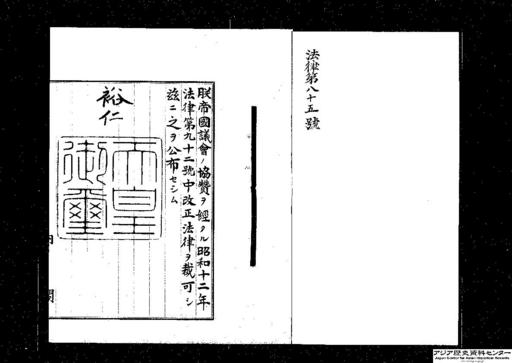 法律第八十五號
朕帝國議會ノ協贊ヲ經タル昭和十二年
法律第九十二號中改正法律ヲ裁可シ
茲ニ之ヲ公布セシム
裕仁
天皇
御璽
アジア歴史資料センター
Japan Center for Asian Historical Records